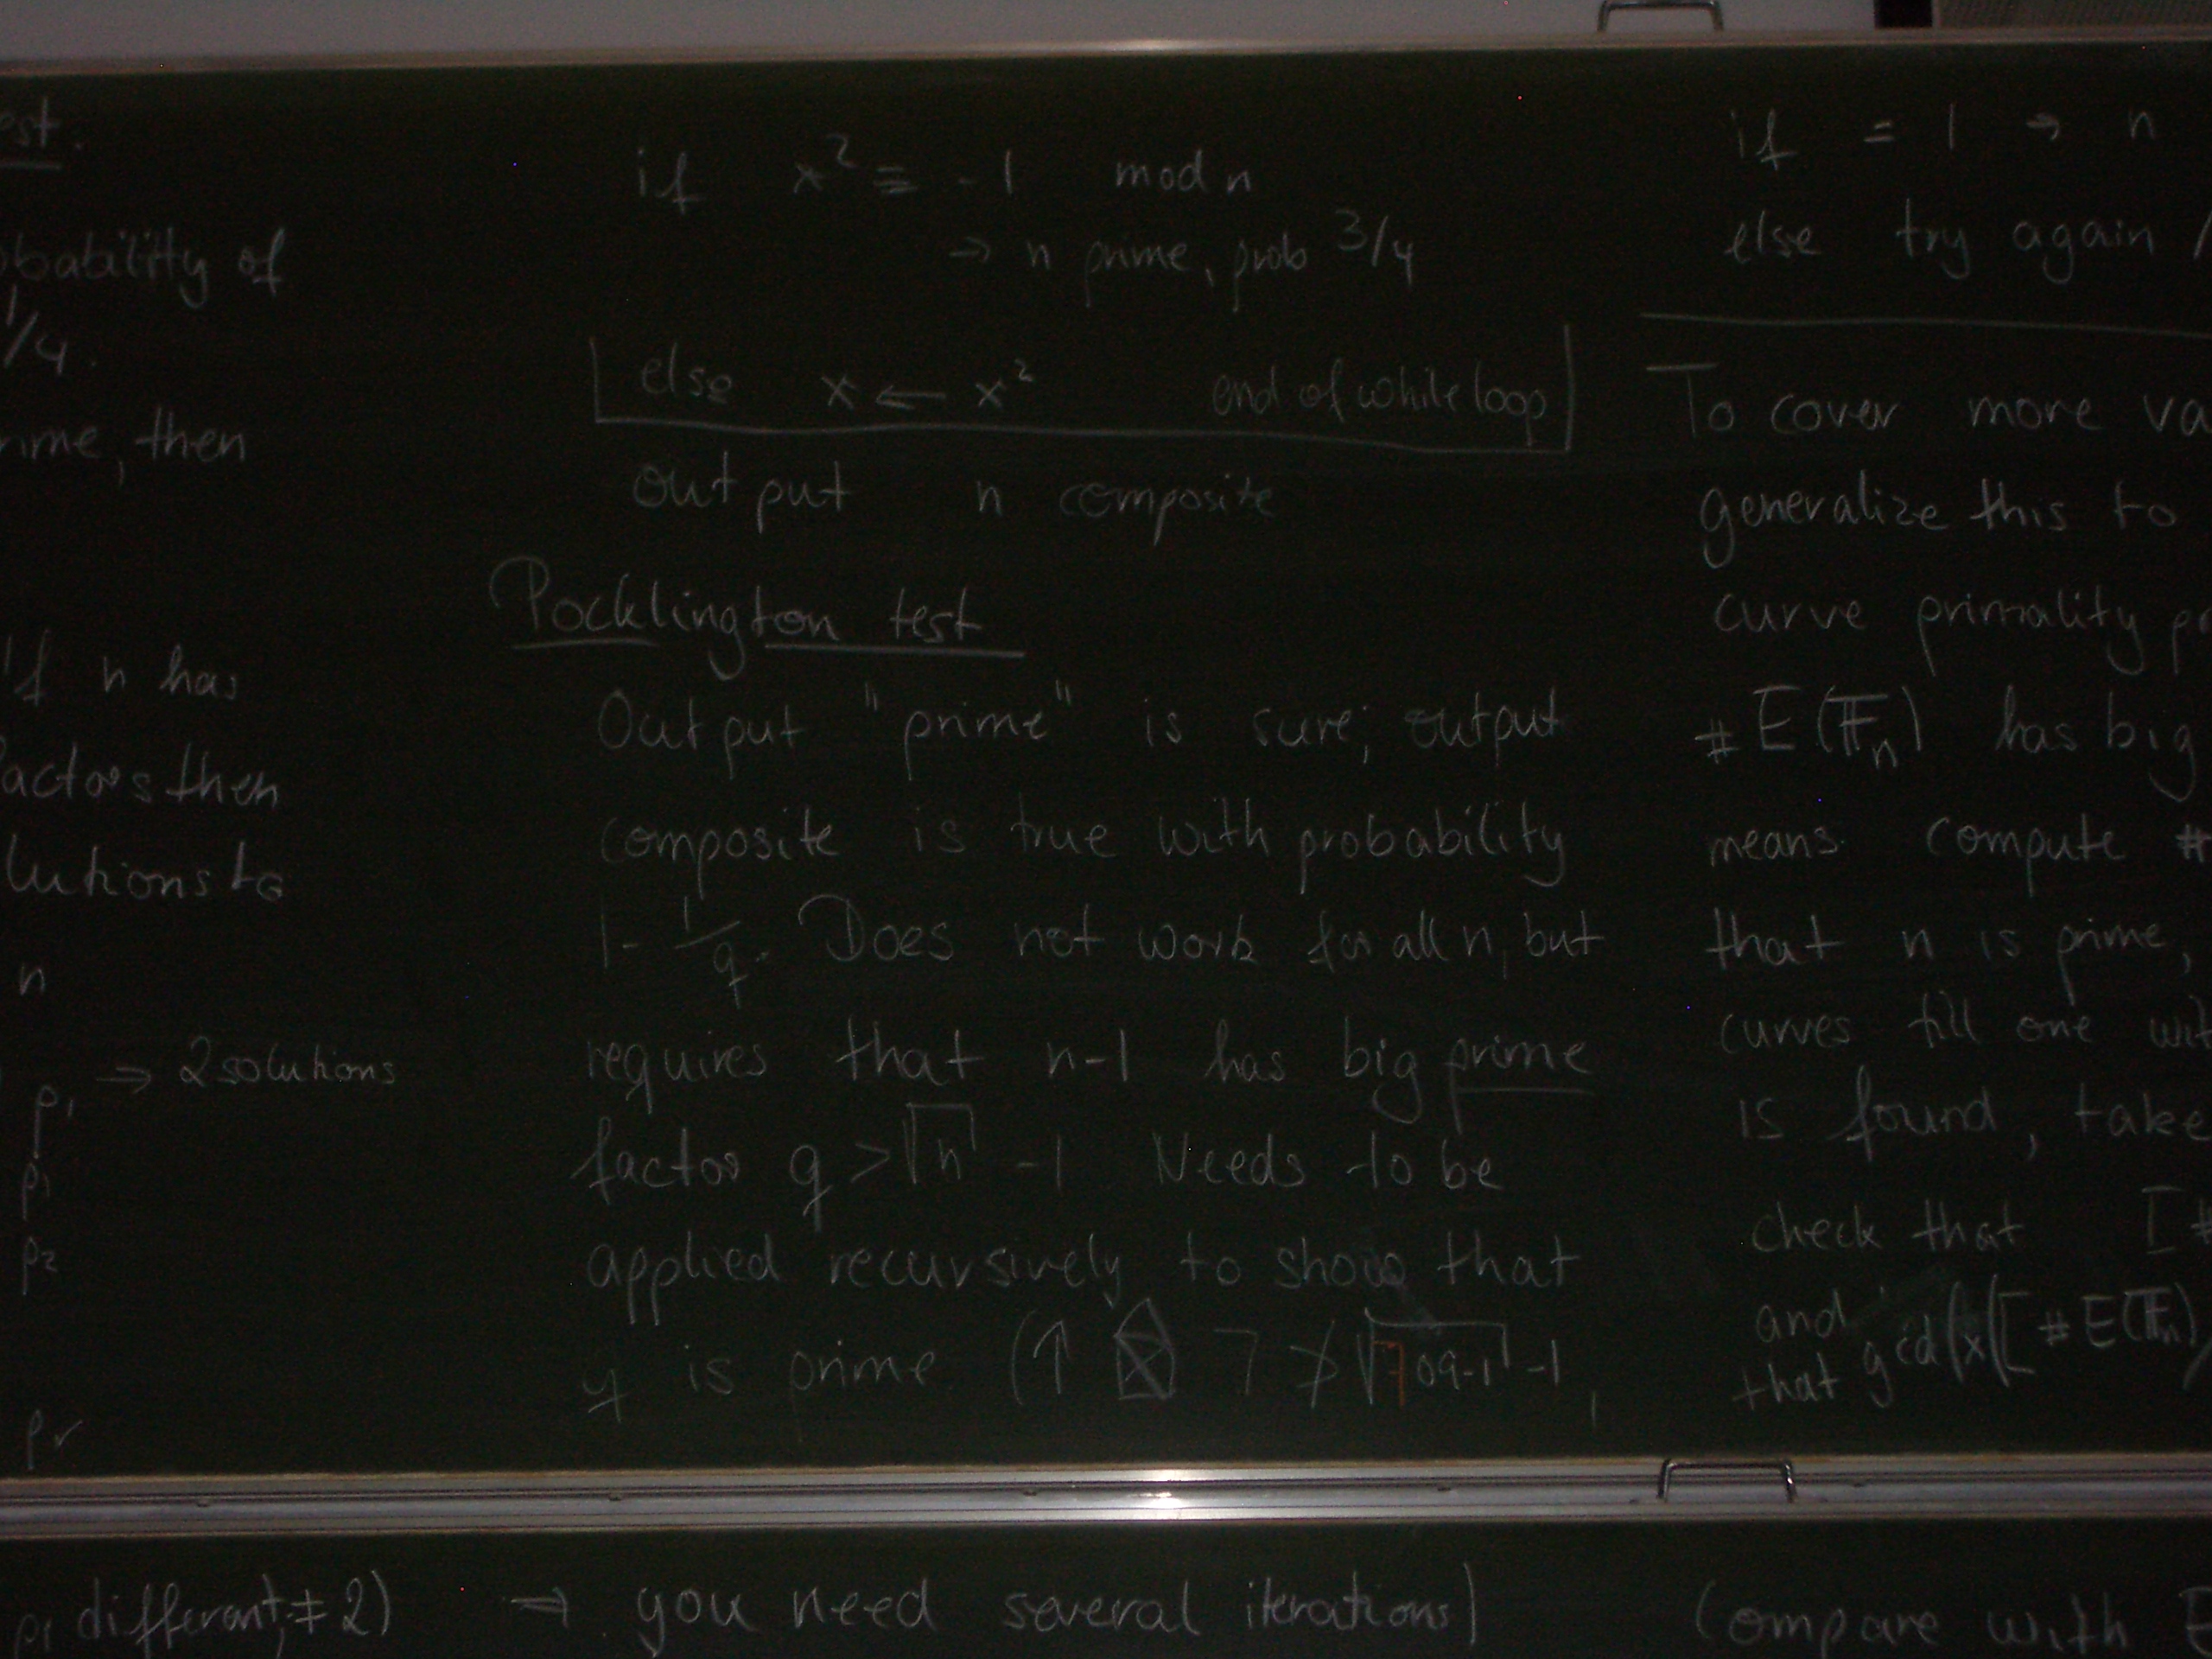 est.
obability of
1/4.
rime, then
If n has
factors then
lutions to
n
p1 → 2 solutions
p1
p2
pr
if x² ≡ -1 mod n
→ n prime, prob 3/4
else x ← x² end of while loop
output n composite
Pocklington test
Output "prime" is sure; output
composite is true with probability
1 - 1/q. Does not work for all n, but
requires that n-1 has big prime
factor q > √n - 1 Needs to be
applied recursively to show that
q is prime (↑ 7 ≯ √709-1 - 1,
if = 1 → n
else try again /
To cover more va
generalize this to
curve primality pr
# E(Fn) has big
means compute #
that n is prime,
curves till one wit
is found, take
check that [#
and
that gcd(x([#E(Fn)
p1 different, ≠ 2) → you need several iterations) (compare with E